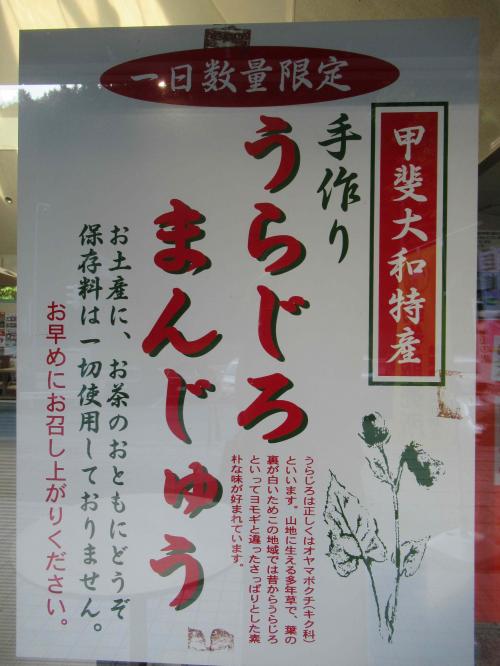 一日数量限定
甲斐大和特産
手作り
うらじろ
まんじゅう
うらじろは正しくはオヤマボクチ(キク科)
といいます。山地に生える多年草で、葉の
裏が白いためこの地域では昔からうらじろ
といってヨモギと違ったさっぱりとした素
朴な味が好まれています。
お土産に、お茶のおともにどうぞ
保存料は一切使用しておりません。
お早めにお召し上がりください。